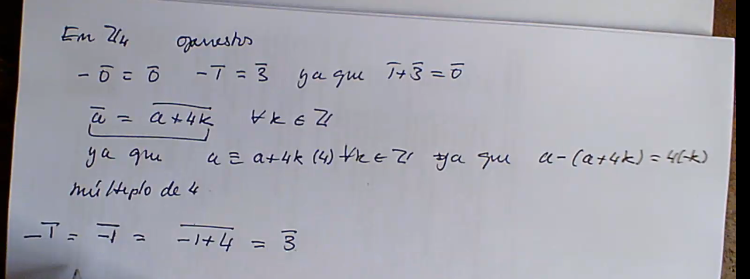 Em ℤ₄ opuestos
-0̄ = 0̄ -1̄ = 3̄ ya que 1̄+3̄ = 0̄
ā = \overline{a+4k} ∀k ∈ ℤ
ya que a ≡ a+4k (4) ∀k ∈ ℤ ya que a-(a+4k) = 4(-k)
múltiplo de 4
-1̄ = \overline{-1} = \overline{-1+4} = 3̄